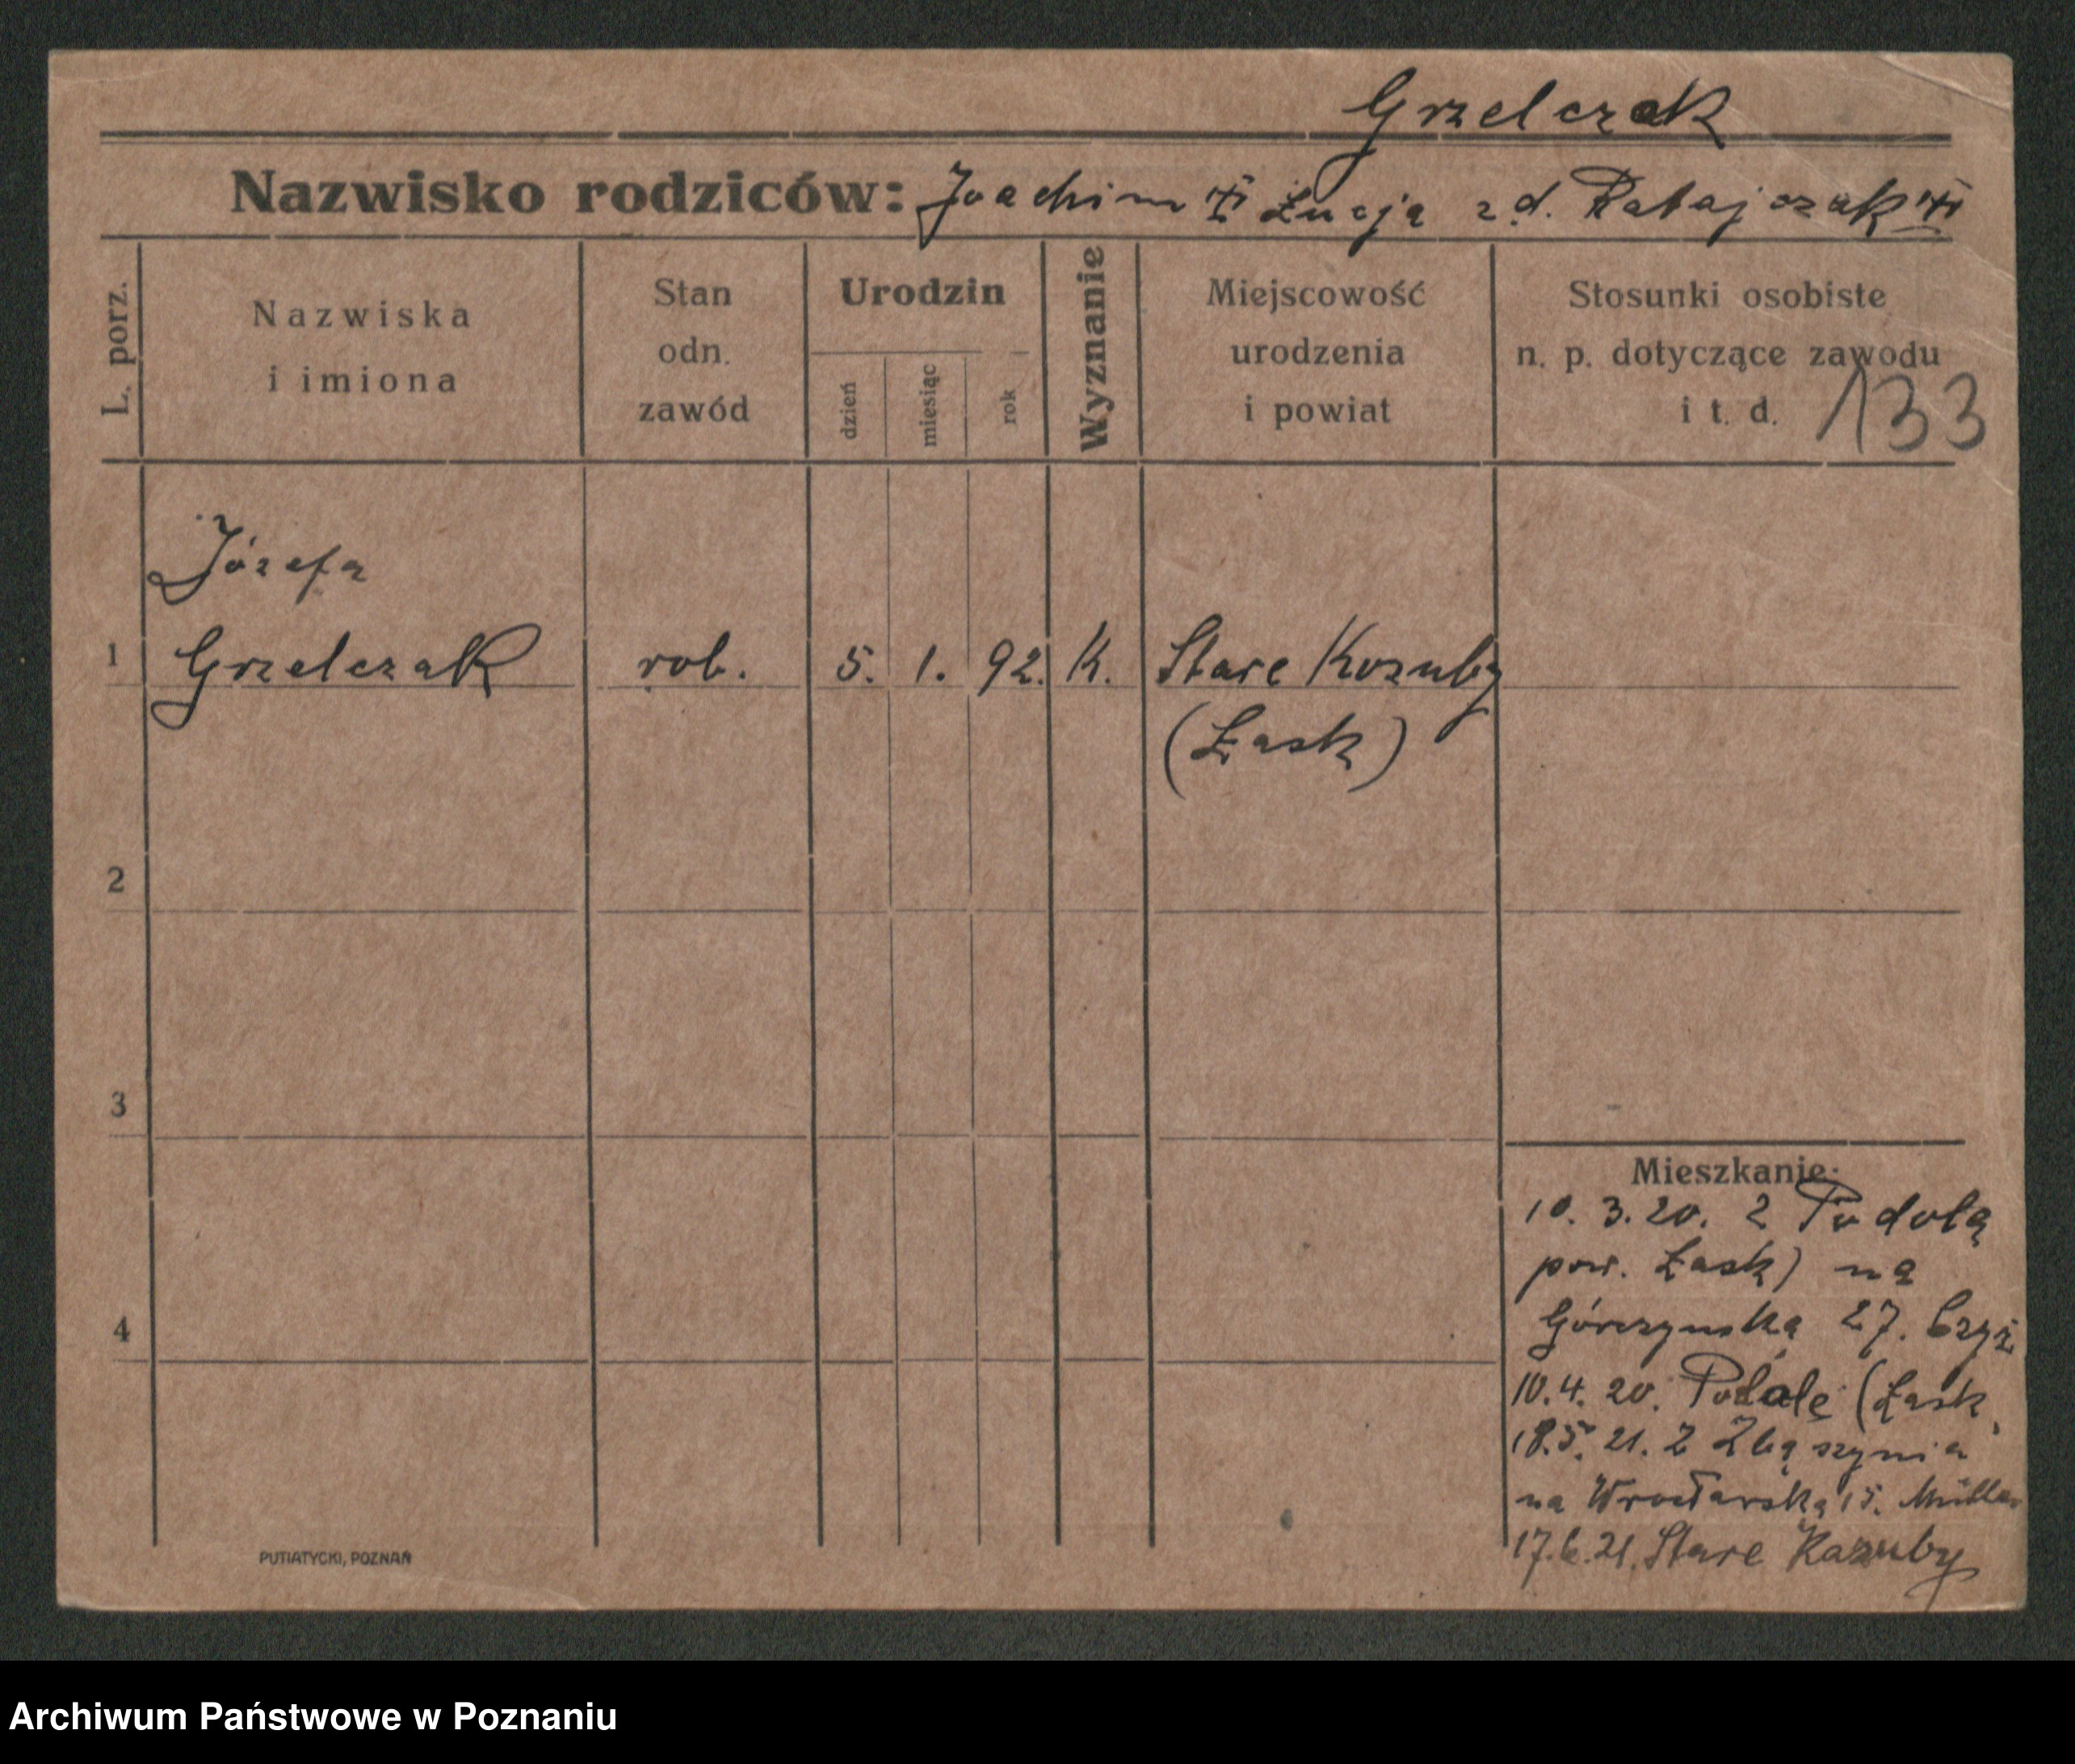 Grzelczak
Nazwisko rodziców: Joachim Łucja z d. Ratajczak
L. porz.
Nazwiska
i imiona
Stan
odn.
zawód
Urodzin
dzień
miesiąc
rok
Wyznanie
Miejscowość
urodzenia
i powiat
Stosunki osobiste
n. p. dotyczące zawodu
i t. d.
133
Józefa
1 Grzelczak rob. 5. 1. 92. K. Stare Kozuby
(Łask)
2
3
4
Mieszkanie:
10. 3. 20. z
pow. Łask) na
Górczynską 27.
10. 4. 20. (Łask
18. 5. 21. Z Zbąszynia
na Wrocławską 15. Müller
17. 6. 21. Stare Kazuby
PUTIATYCKI, POZNAŃ
Archiwum Państwowe w Poznaniu